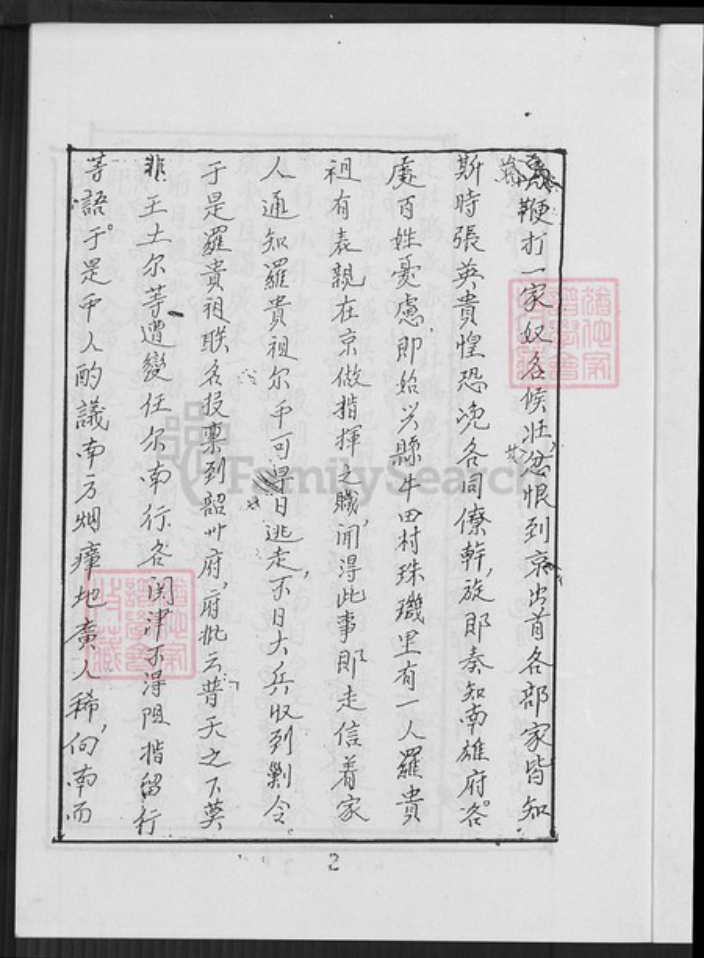 鞭打一家奴名候壯忿恨到京出首各部家皆知
斯時張英貴惶恐况各同僚幹旋即奏知南雄府。各
處百姓憂慮,即始兴縣牛田村珠璣里有一人羅貴
祖有表親在京做指揮之職,闻得此事即走信着家
人通知羅貴祖尔等可得日逃走,不日大兵收到剿令。
于是羅貴祖联名投禀到韶州府,府批云普天之下莫
非王土尔等遭變任尔南行各関津不得阻揩留行
等語于。是乎人酌議南方烟瘴地廣人稀,向南而
2
猶他家譜學會特藏
猶他家譜學會特藏
FamilySearch